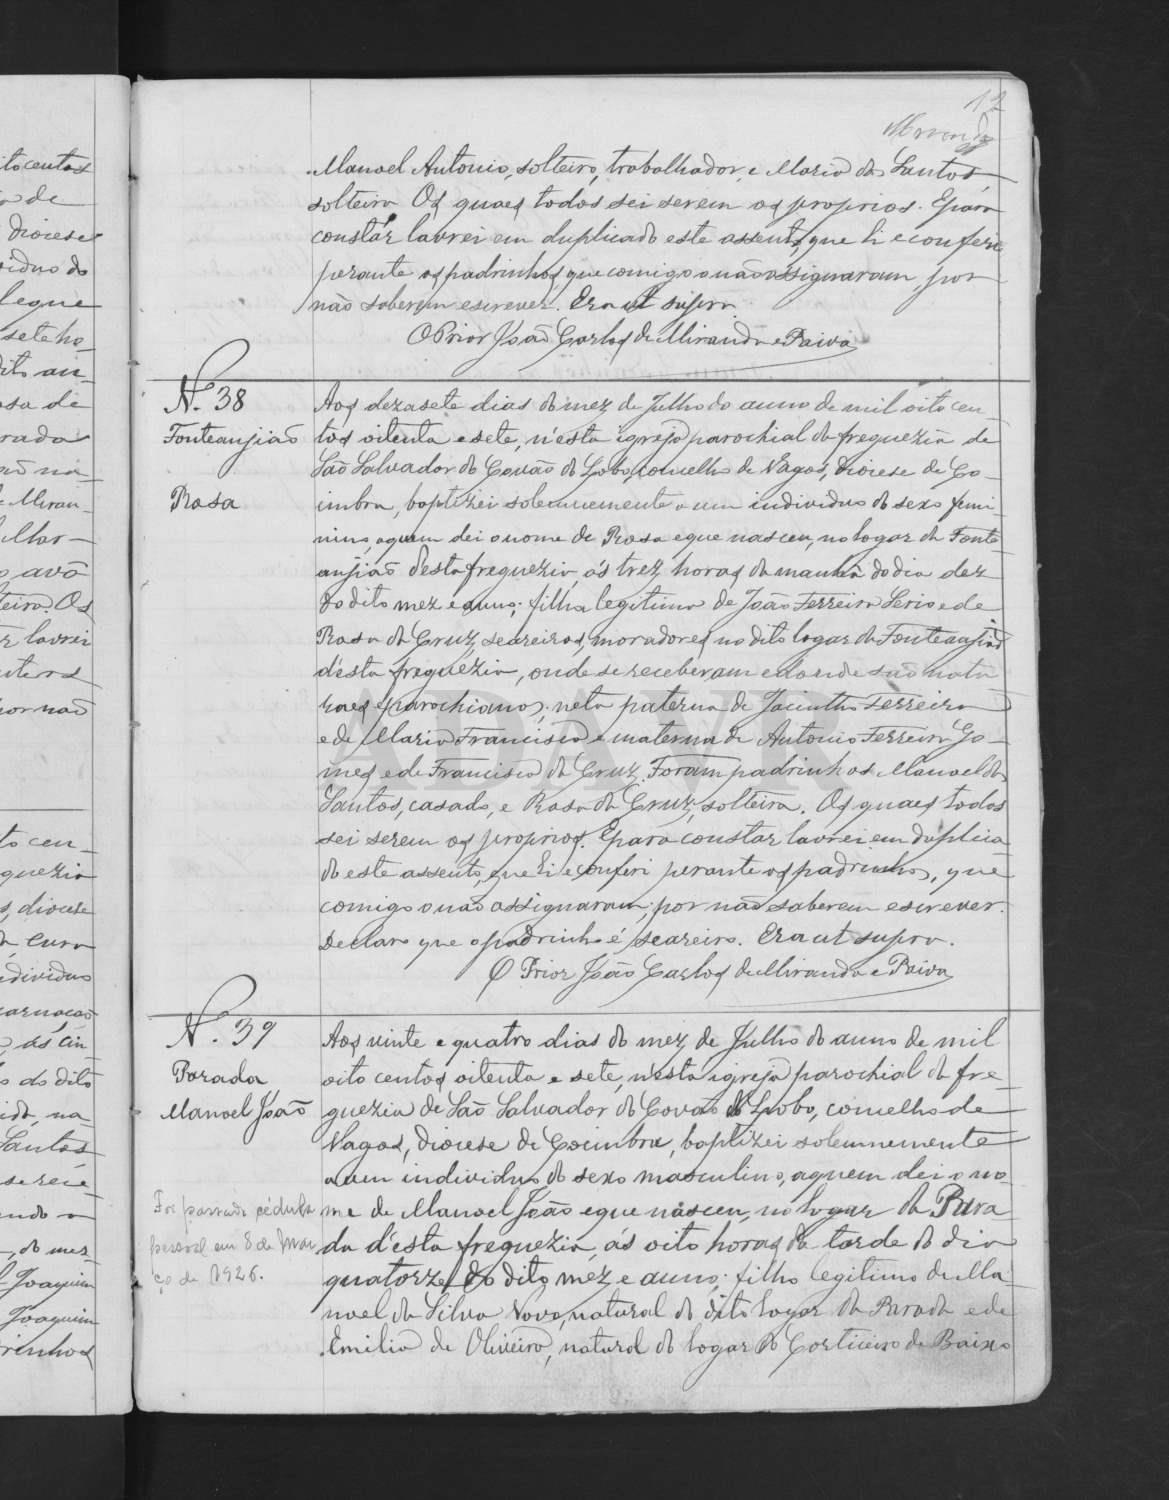 12
Miranda
Manoel Antonio, solteiro, trabalhador, e Maria dos Santos,
solteira Os quaes todos sei serem os proprios. E para
constár lavrei em duplicado este assento, que li e conferi
perante os padrinhos, que comigo o não assignaram, por
não saberem escrever. Era ut supra.
O Prior João Carlos de Miranda e Paiva
N. 38
Fonteanjião
Rosa
Aos dezasete dias do mez de Julho do anno de mil oito cen-
tos oitenta e sete, n'esta igreja parochial da freguezia de
São Salvador do Covão do Lobo, concelho de Vagos, diocese de Co-
imbra, baptizei solemnemente a um individuo do sexo femi-
nino, a quem dei o nome de Rosa e que nasceu, no logar da Fonte
anjião d'esta freguezia, ás trez horas da manhã do dia dez
do dito mez e anno; filha legitima de João Ferreira Serio e de
Rosa da Cruz, seareiros, moradores no dito logar da Fonteanjião
d'esta freguezia, onde se receberam e donde são natu
raes e parochianos; neta paterna de Jacintho Ferreira
e de Maria Francisca e materna de Antonio Ferreira Go-
mes e de Francisca da Cruz. Foram padrinhos Manoel dos
Santos, casado, e Rosa da Cruz, solteira. Os quaes todos
sei serem os proprios. E para constar lavrei em duplica
do este assento, que li e conferi perante os padrinhos, que
comigo o não assignaram, por não saberem escrever.
Declaro que o padrinho é seareiro. Era ut supra.
O Prior João Carlos de Miranda e Paiva
N. 39
Parada
Manoel João
Foi passada cédula
pessoal em 8 de Mar
ço de 1926.
Aos vinte e quatro dias do mez de Julho do anno de mil
oito centos oitenta e sete, n'esta igreja parochial da fre-
guezia de São Salvador do Covão do Lobo, concelho de
Vagos, diocese de Coimbra, baptizei solemnemente
a um individuo do sexo masculino, a quem dei o no-
me de Manoel João e que nasceu, no logar da Para
da d'esta freguezia, ás oito horas da tarde do dia
quatorze do dito mez e anno; filho legitimo de Ma-
noel da Silva Novo, natural do dito logar da Parada e de
Emilia de Oliveira, natural do logar do Corticeiro de Baixo
ADAVR